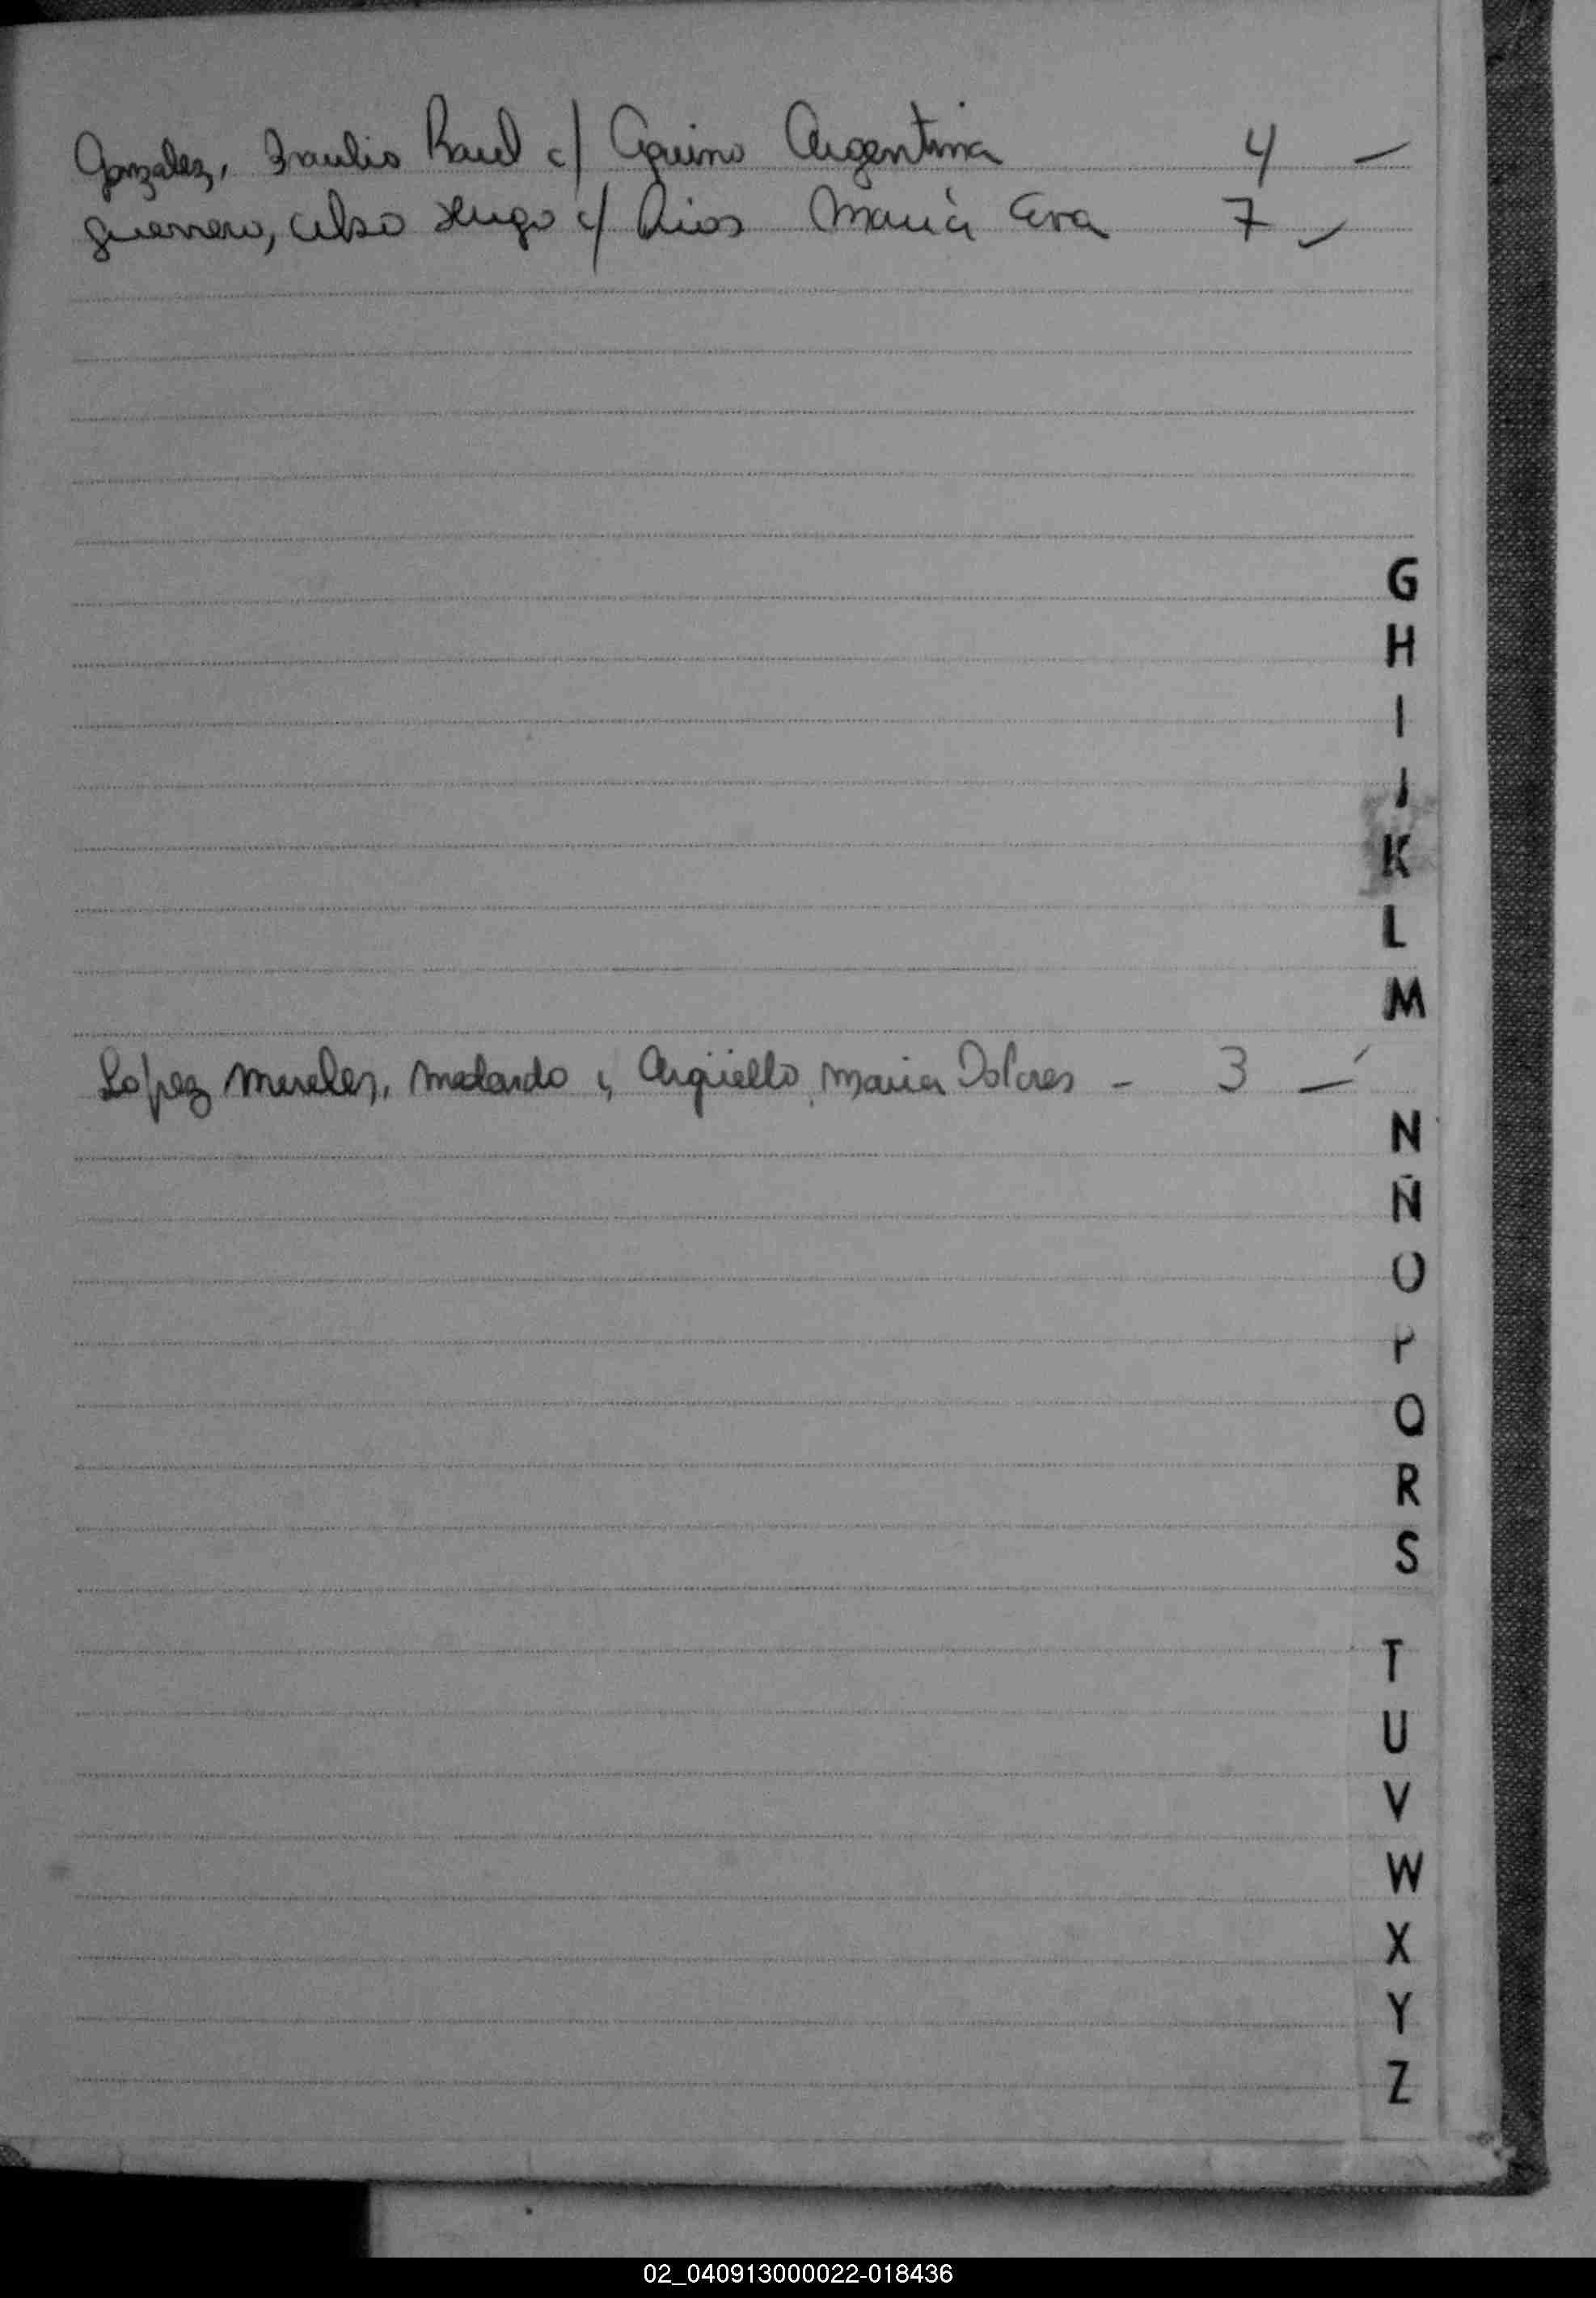 Gonzalez, Braulio Raul c/ Aquino Argentina 4 —
Guerrero, Celso Hugo c/ Rios Maria Eva 7 —
G
H
I
J
K
L
M
Lopez Mereles, Medardo c, Argüello, Maria Dolores - 3 —
N
Ñ
O
P
Q
R
S
T
U
V
W
X
Y
Z
02_040913000022-018436